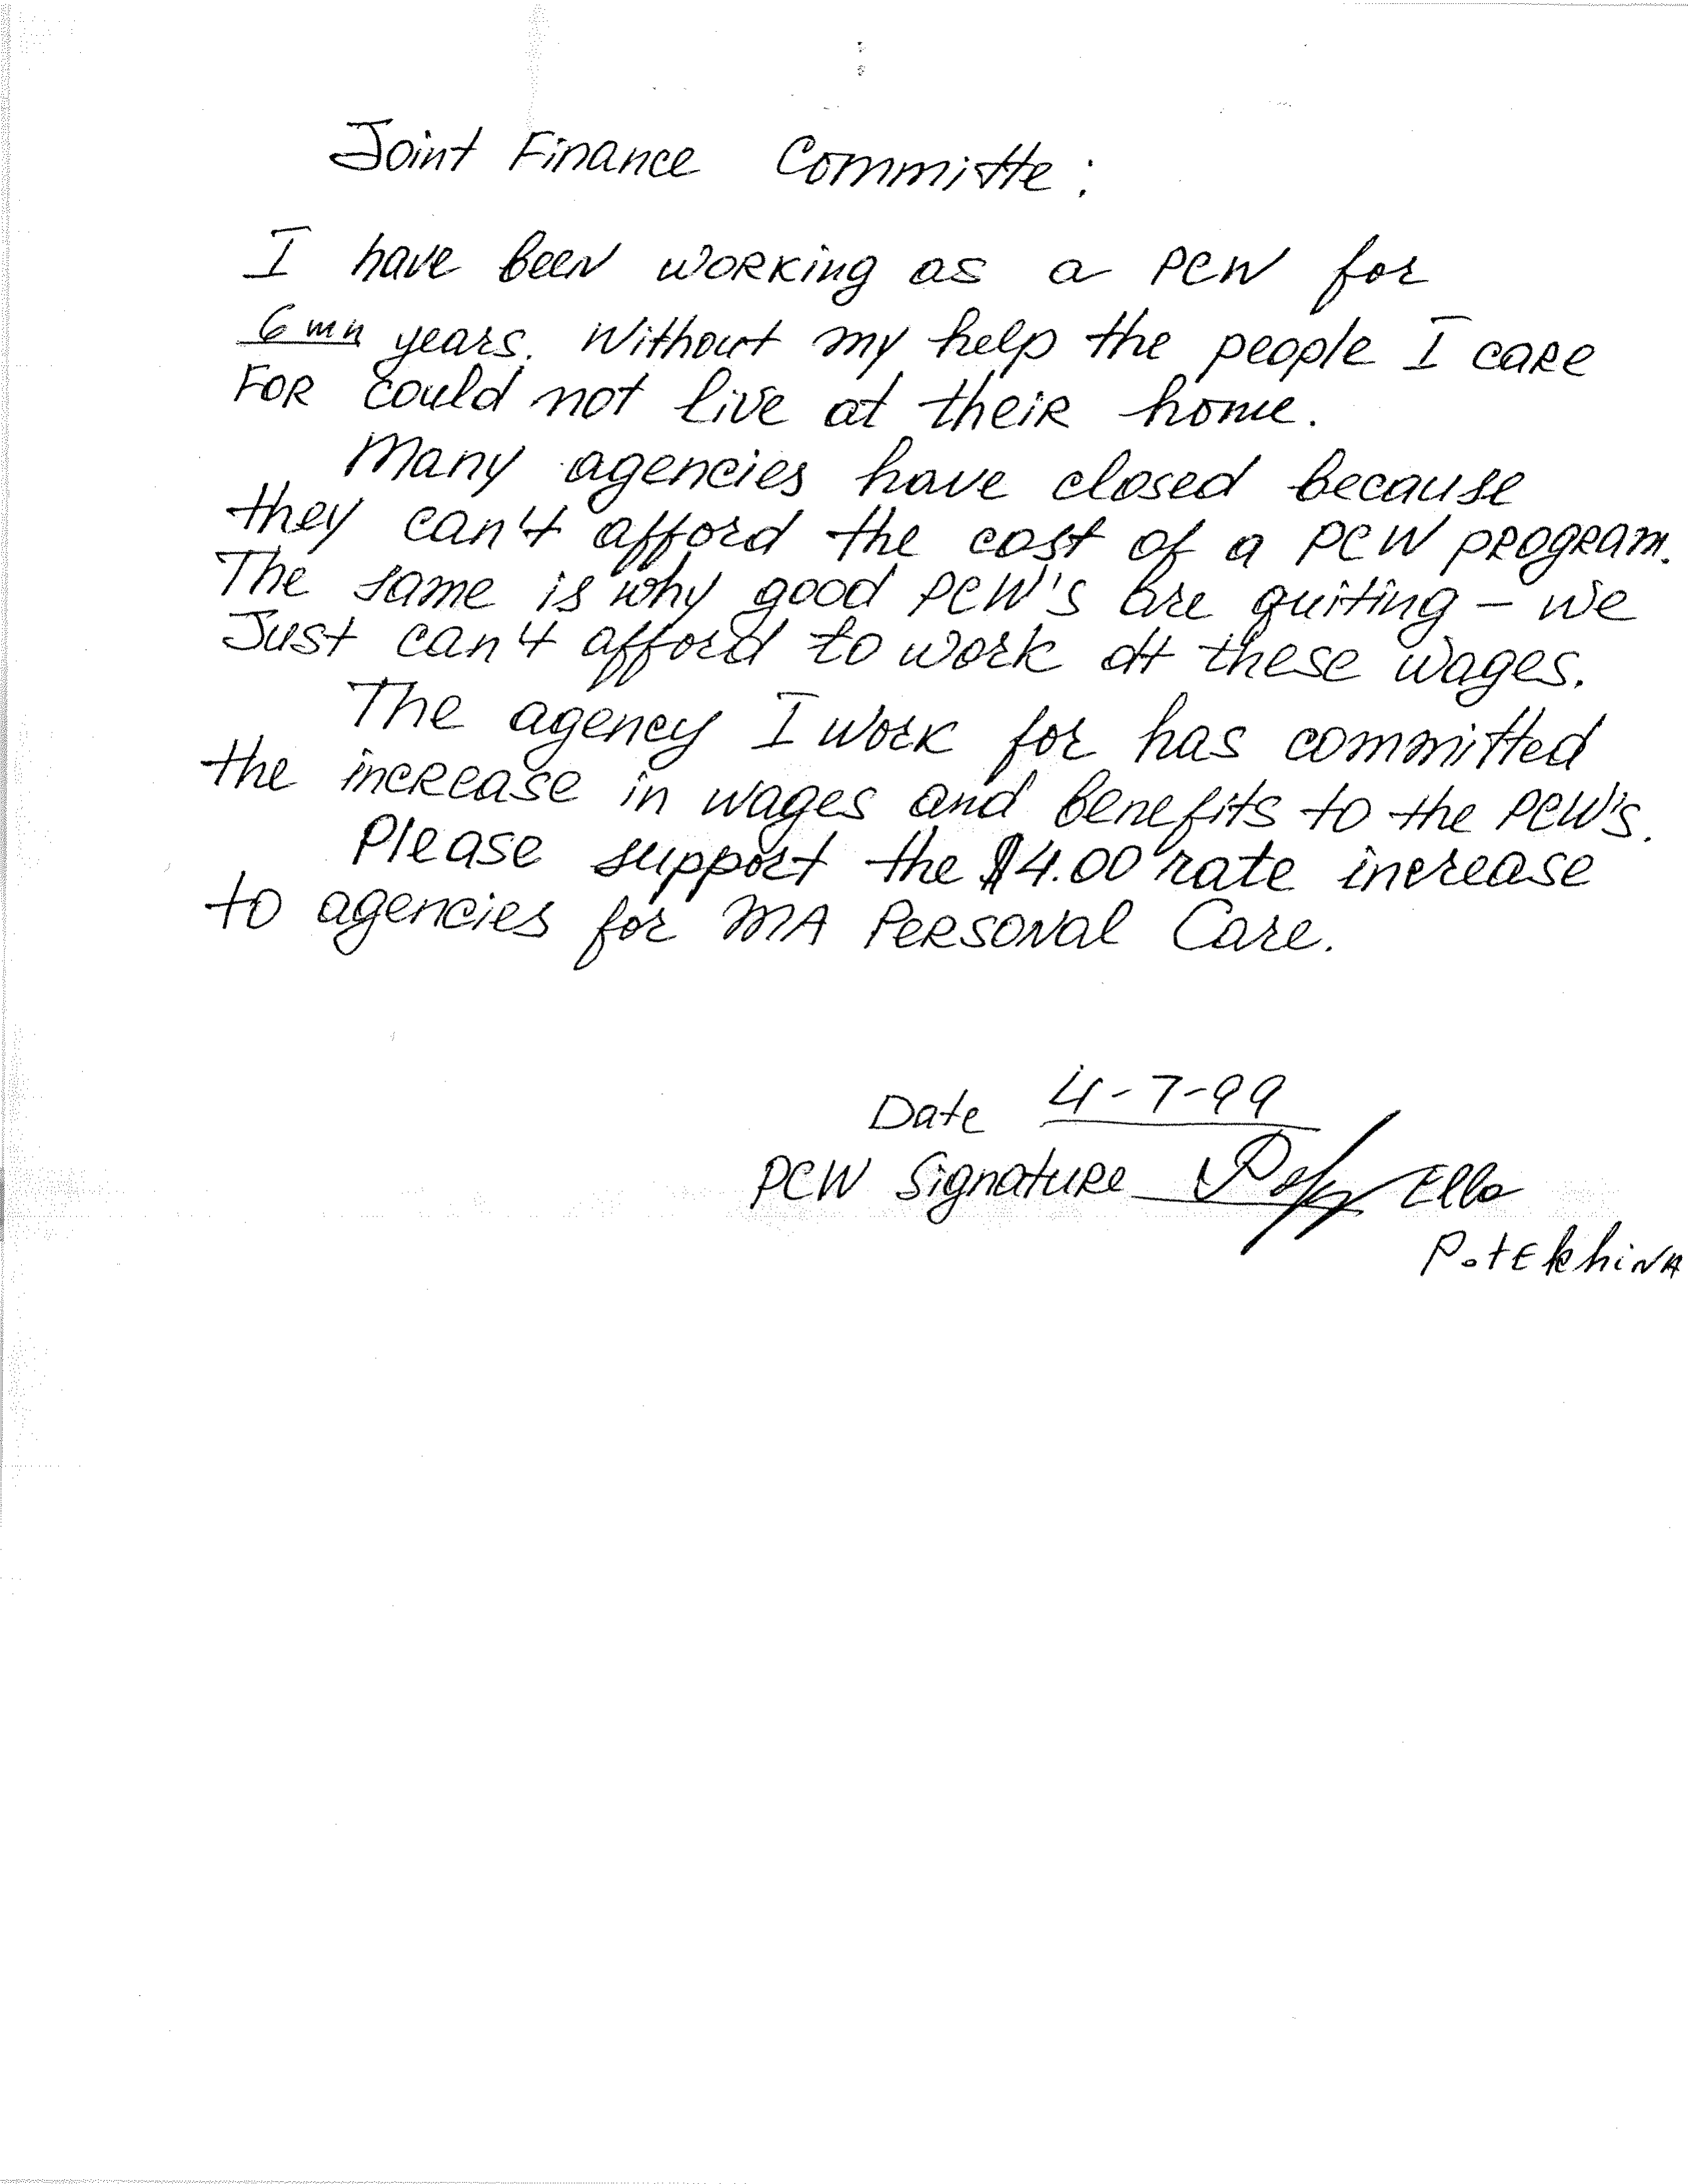 Joint Finance Committe:
I have been working as a PCW for
6 mn years. Without my help the people I care
FOR could not live at their home.
Many agencies have closed because
they can't afford the cost of a PCW program.
The same is why good PCW's are quiting – we
Just can't afford to work at these wages.
The agency I work for has committed
the increase in wages and benefits to the PCW's.
Please support the $4.00 rate increase
to agencies for MA Personal Care.
Date 4-7-99
PCW Signature Ella
Potekhina